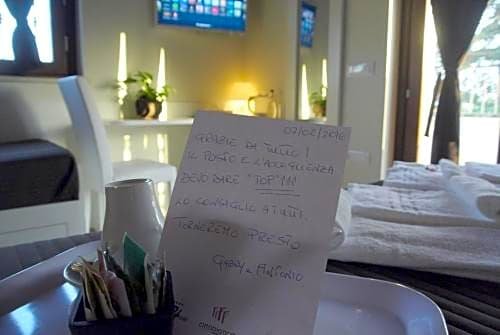 07/02/2016
GRAZIE DI TUTTO!
IL POSTO E L'ACCOGLIENZA
DEVO DIRE "TOP"!!!
LO CONSIGLIO A TUTTI.
TORNEREMO PRESTO
GABRY e ANTONIO